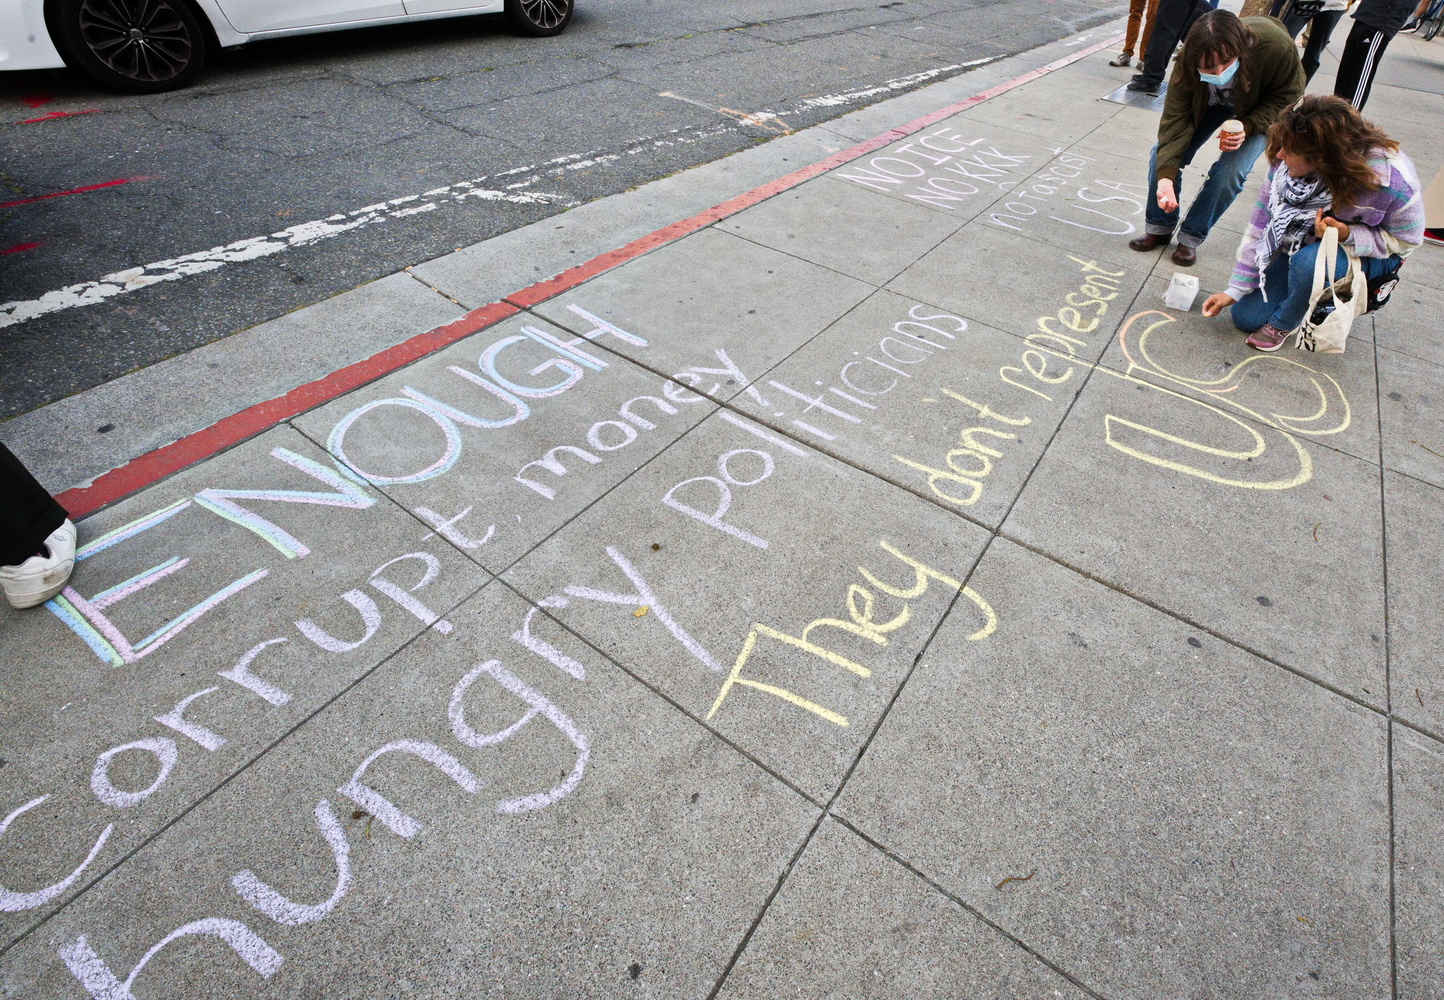 ENOUGH
corrupt, money
hungry politicians
They don't represent
US
NO ICE
NO KKK
no fascist
USA